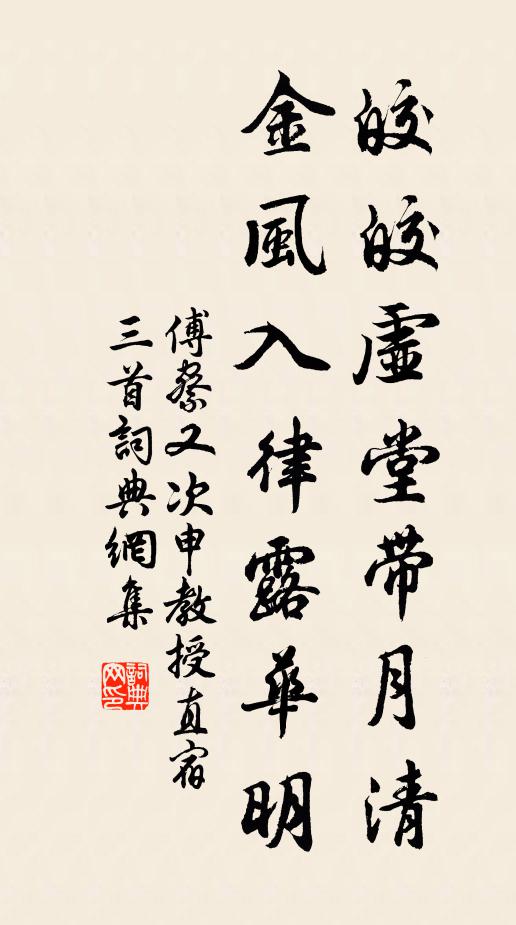 皎皎虛堂帶月清
金風入律露華明
傅察又次申教授直宿
三首詞典網集
詞典
网印